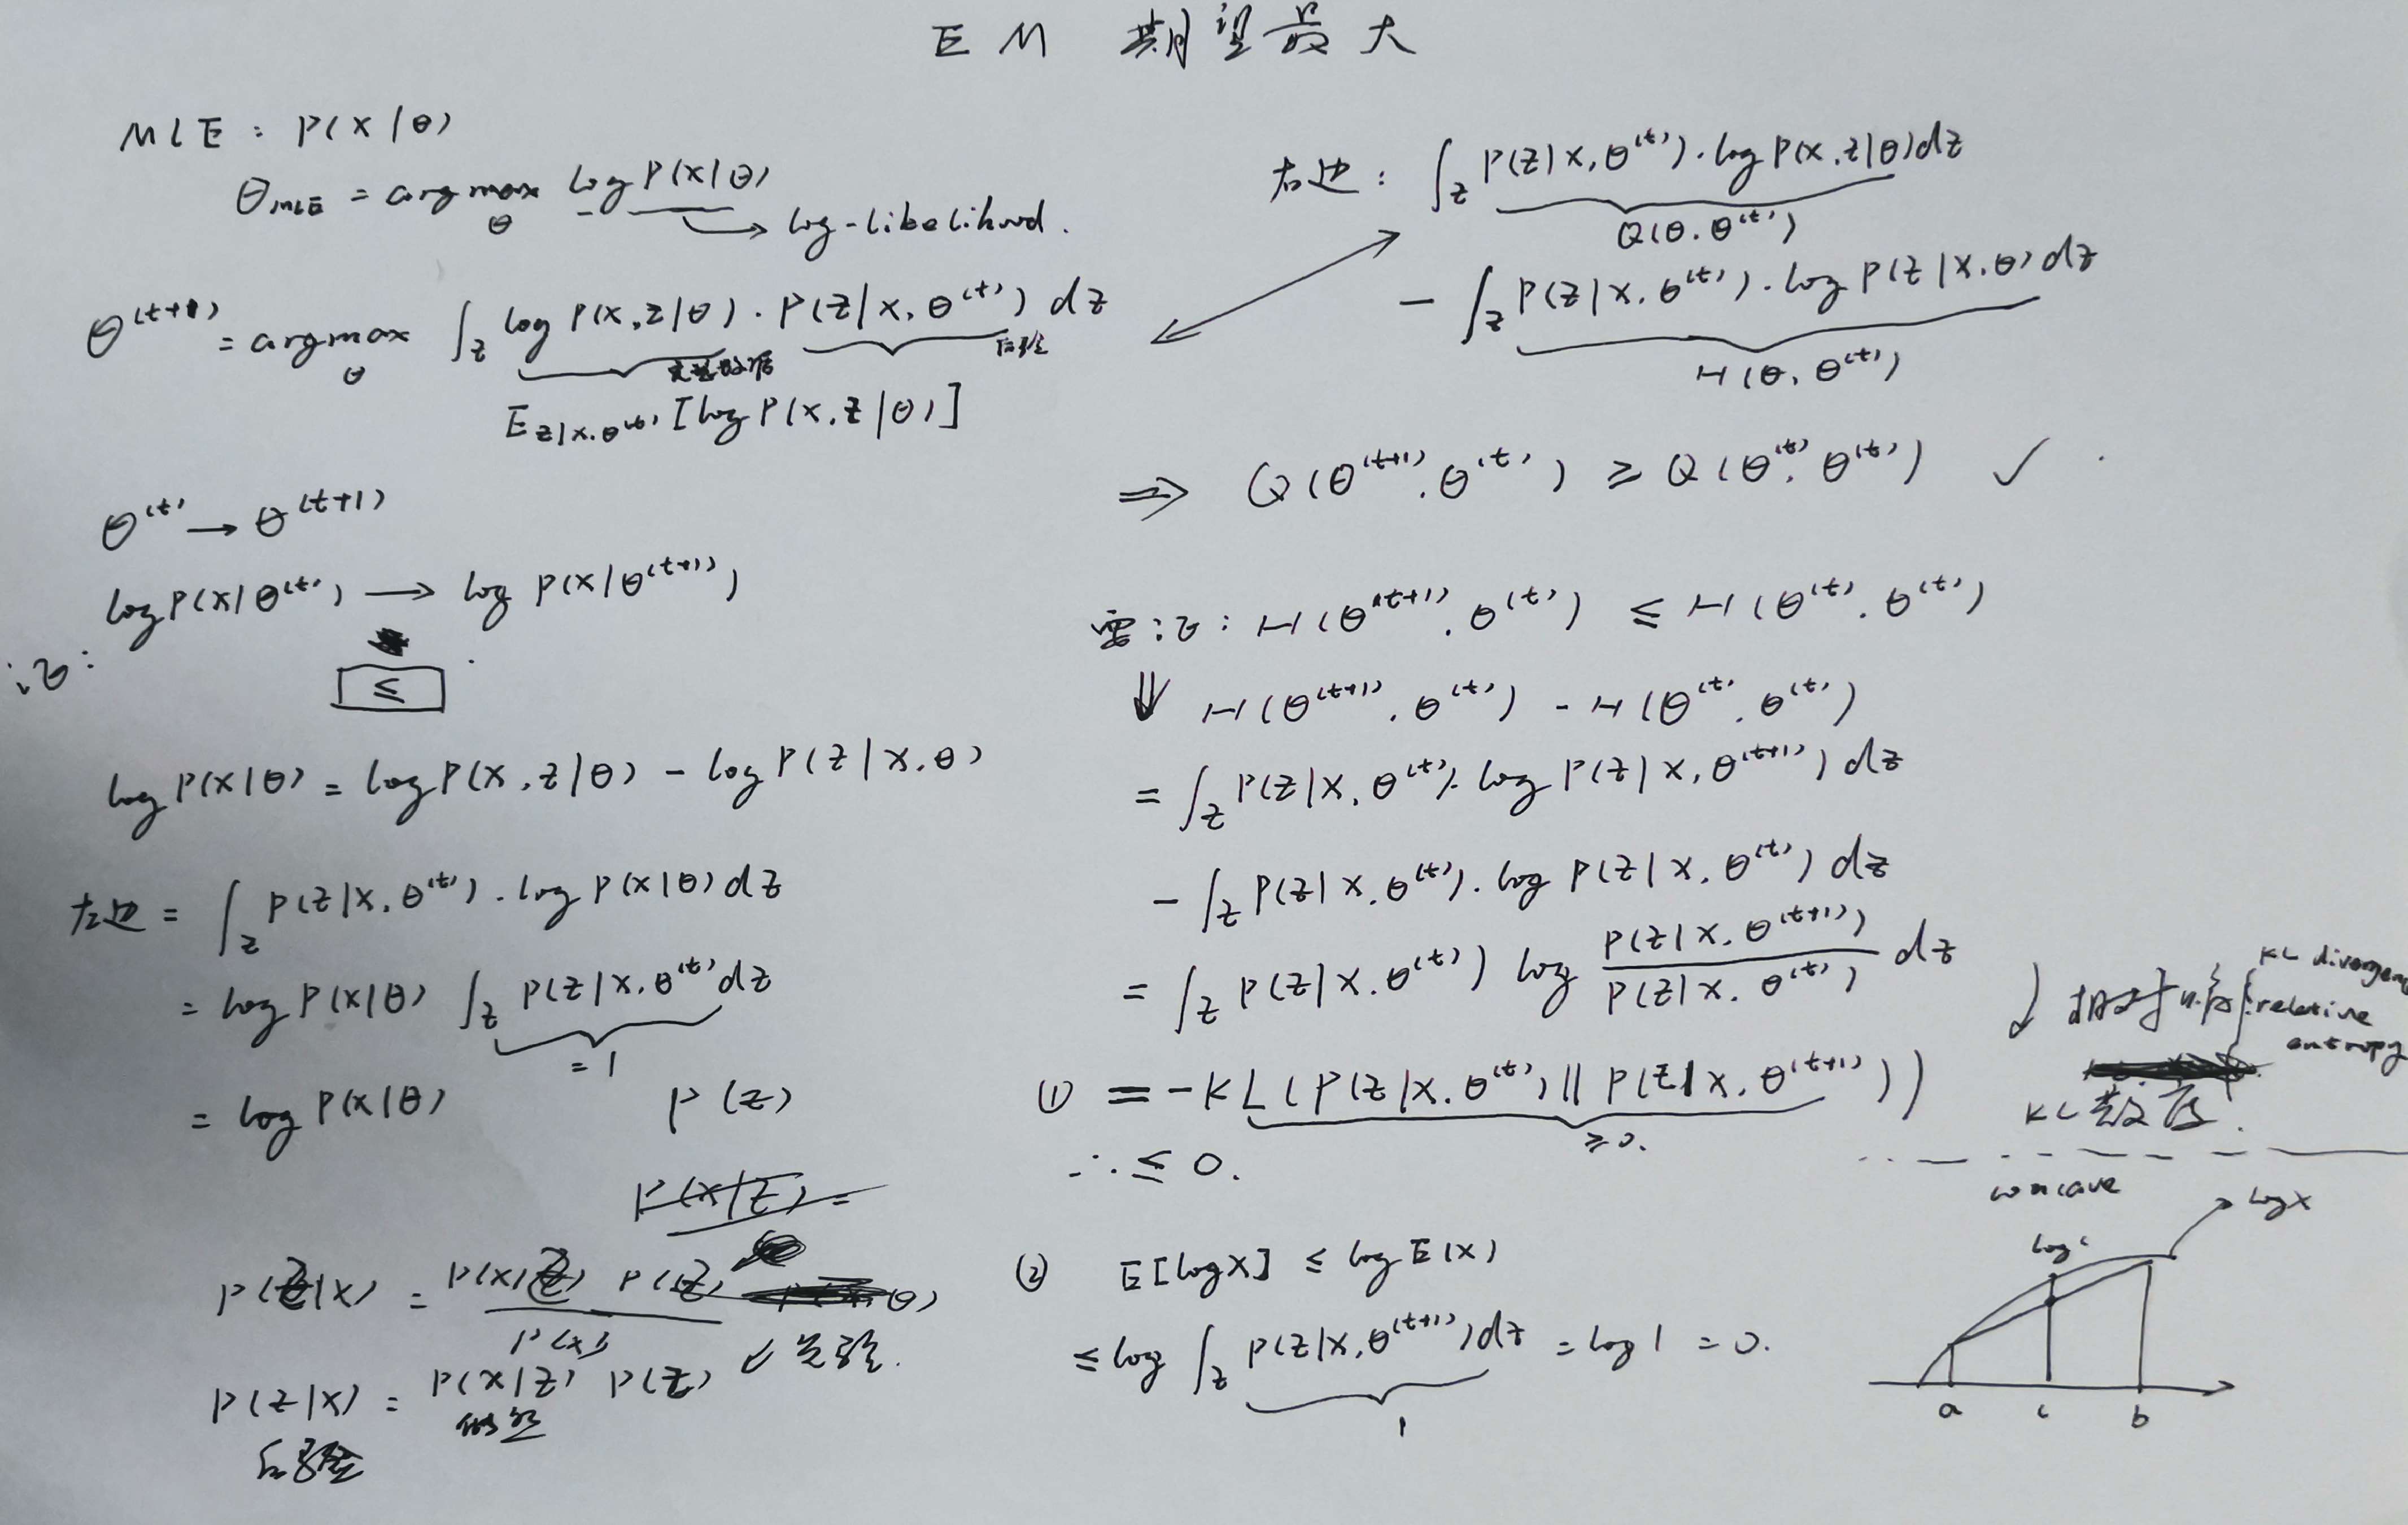 EM 期望最大
MLE : P(X|θ)
θ_MLE = argmax_θ log P(X|θ)
→ log-likelihood.
θ^(t+1) = argmax_θ ∫_z log P(x,z|θ) · P(z|x,θ^(t)) dz
完整数据 后验
E_z|x.θ^(t) [log P(x,z|θ)]
θ^(t) → θ^(t+1)
log P(x|θ^(t)) → log P(x|θ^(t+1))
证:
≤
log P(x|θ) = log P(x,z|θ) - log P(z|x,θ)
左边 = ∫_z P(z|x,θ^(t)) · log P(x|θ) dz
= log P(x|θ) ∫_z P(z|x,θ^(t)) dz
= 1
= log P(x|θ)
P(z)
P(x|z) =
P(z|x) = P(x|z) P(z) / P(x)
P(z|x) = P(x|z) P(z) ↙ 先验.
后验 似然
右边: ∫_z P(z|x,θ^(t)) · log P(x,z|θ) dz
Q(θ.θ^(t))
- ∫_z P(z|x.θ^(t)) · log P(z|x.θ) dz
H(θ,θ^(t))
⇒ Q(θ^(t+1).θ^(t)) ≥ Q(θ^(t).θ^(t)) ✓
需证: H(θ^(t+1).θ^(t)) ≤ H(θ^(t).θ^(t))
⇓ H(θ^(t+1).θ^(t)) - H(θ^(t).θ^(t))
= ∫_z P(z|x,θ^(t)) · log P(z|x,θ^(t+1)) dz
- ∫_z P(z|x.θ^(t)) · log P(z|x,θ^(t)) dz
= ∫_z P(z|x.θ^(t)) log P(z|x,θ^(t+1)) / P(z|x.θ^(t)) dz
① = -KL(P(z|x.θ^(t)) || P(z|x,θ^(t+1)))
≥ 0.
∴ ≤ 0.
② E[log x] ≤ log E(x)
≤ log ∫_z P(z|x,θ^(t+1)) dz = log 1 = 0.
1
相对熵
KL divergen
relative
entropy
KL散度.
concave
log x
log c
a c b